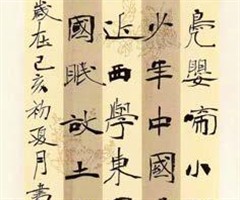 嬰啼小
少年中國
近西學東
國眠故土
歲在己亥初夏月書